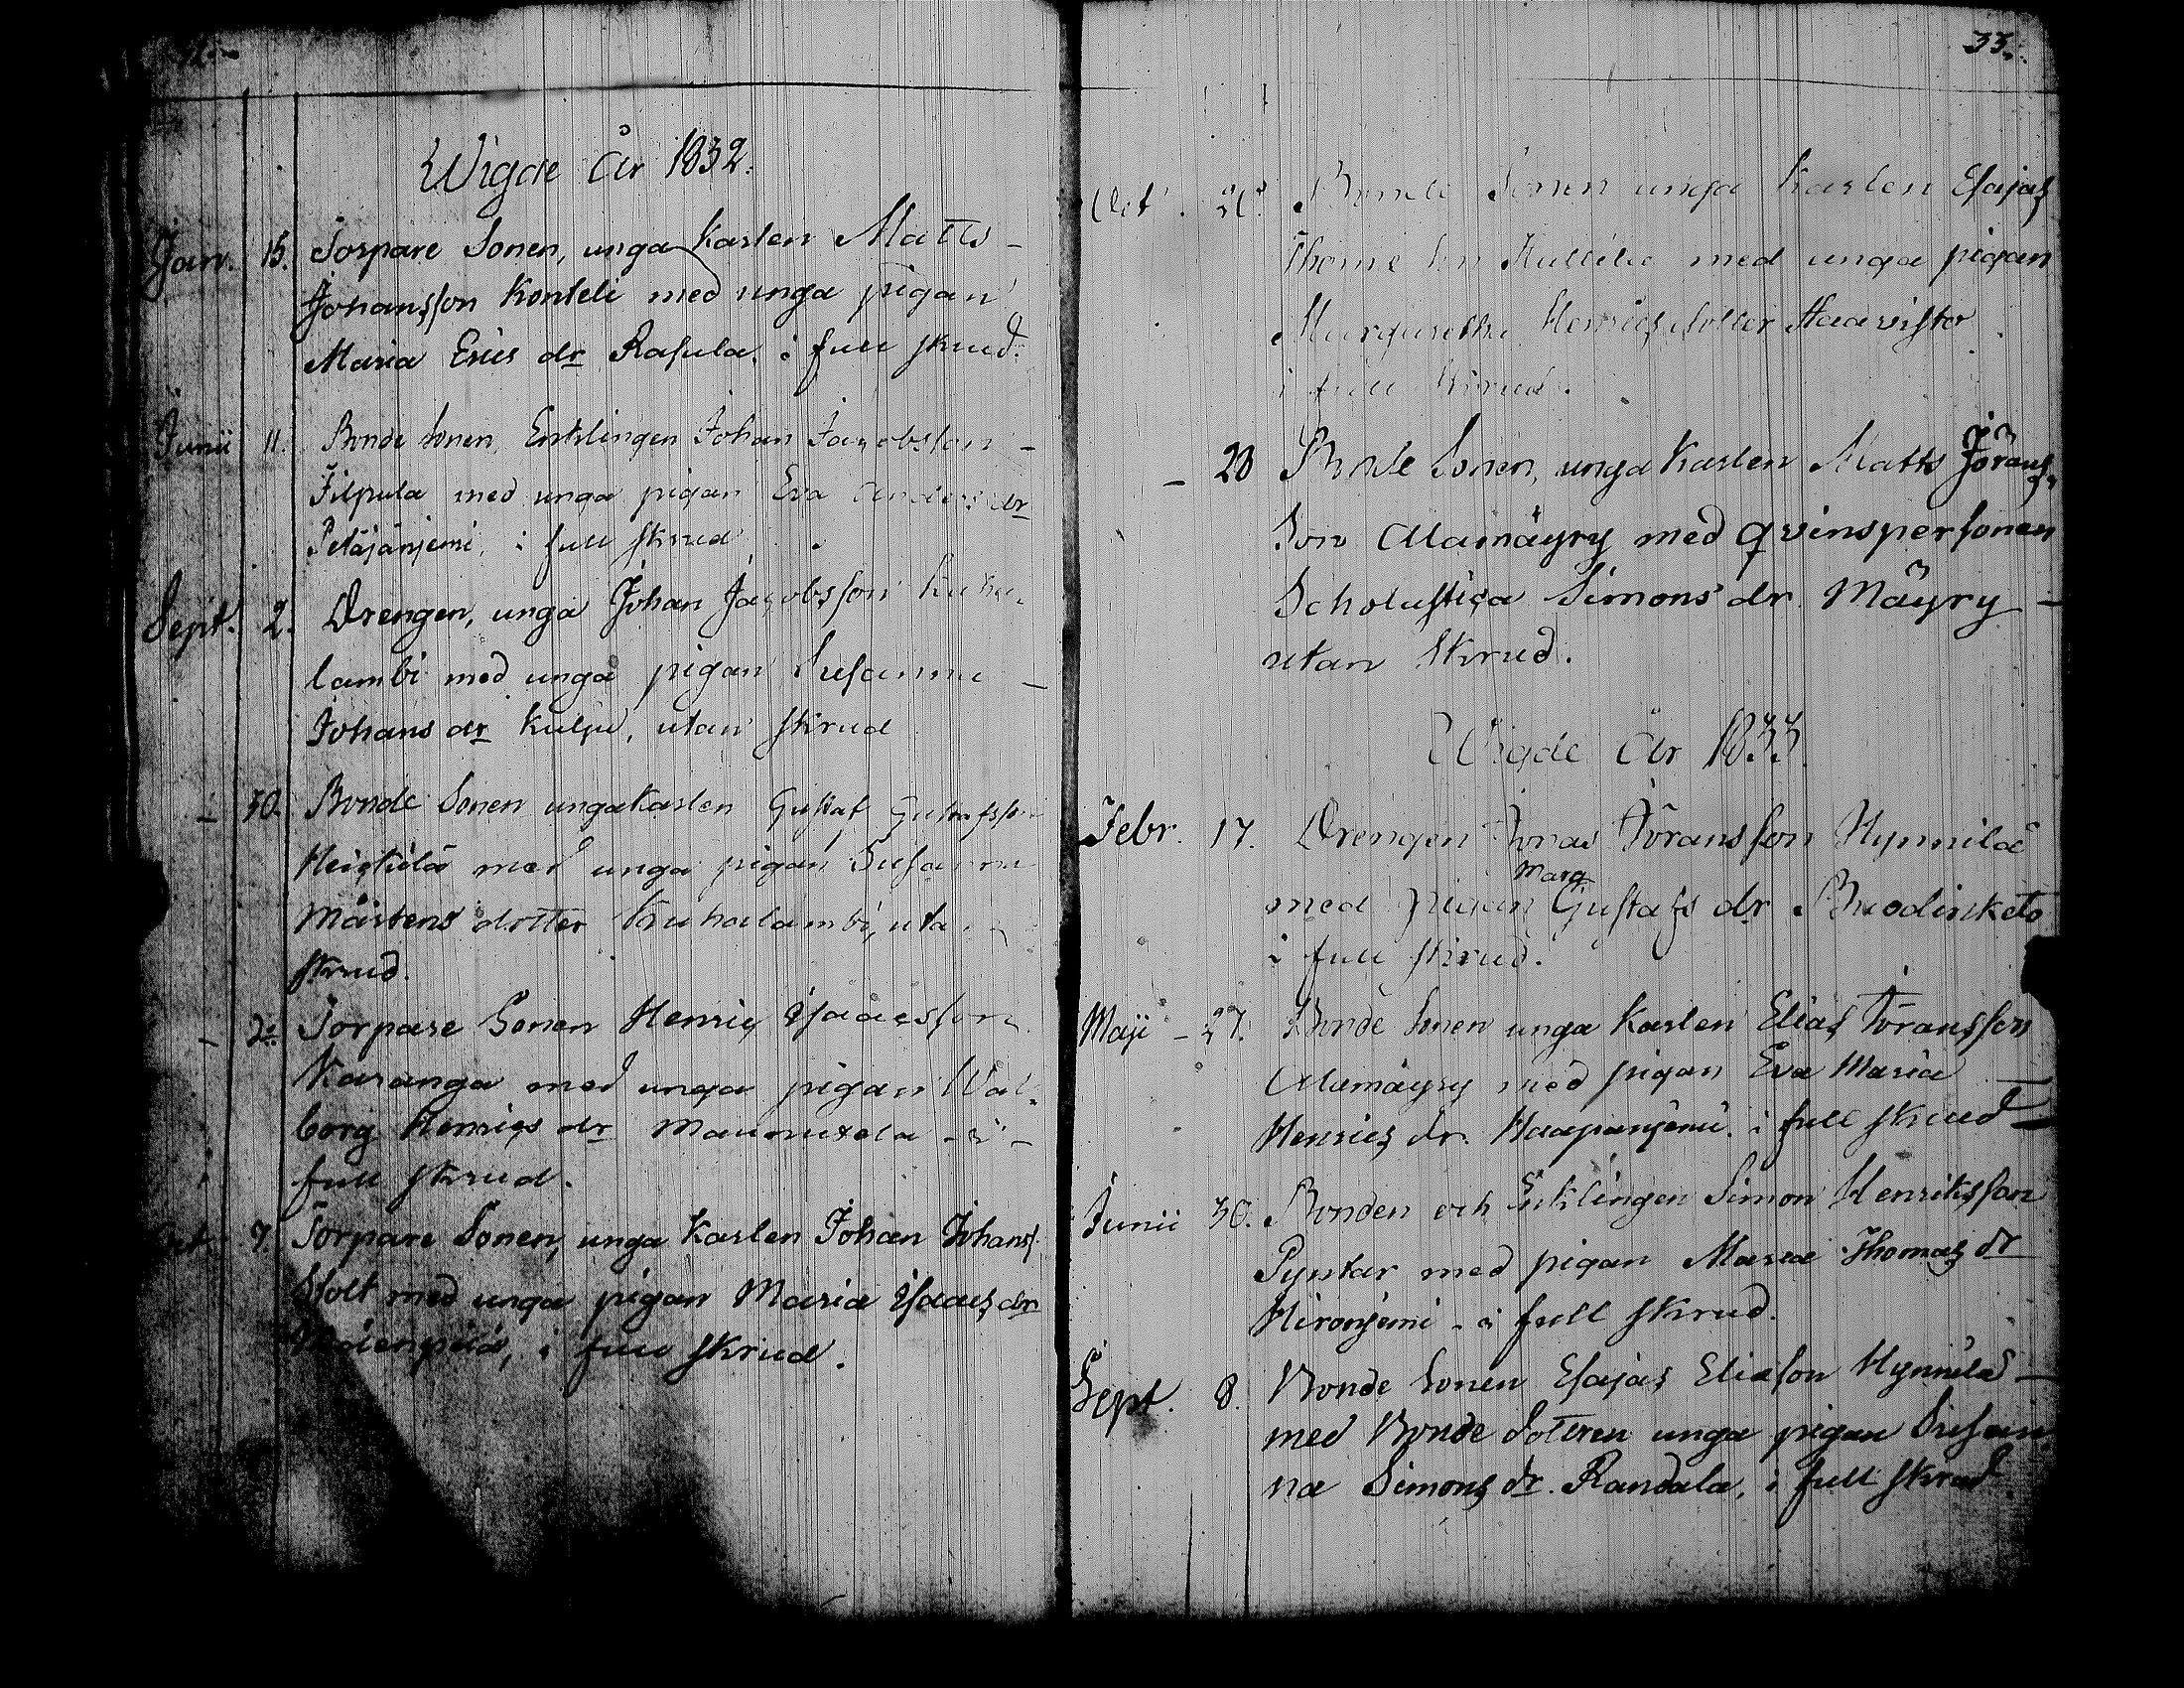 Wigde År 1832.
Jan. 15. Torpare Sonen, unga Karlen Matts –
Johansson Konteli med unga pigan
Maria Erics dr Rasula, i full skrud.
Junii 11. Bonde Sonen, Enklingen Johan Jacobsson –
Filpula med unga pigan Eva Anders dr
Petäjänjemi, i full skrud.
Sept. 2. Drengen, unga Johan Jacobsson Kuha-
lambi med unga pigan Susanna –
Johans dr Kulju, utan skrud
– 30. Bonde Sonen unga Karlen Gustaf Gustafsson
Heickilä med unga pigan Susanna
Mårtens dotter Kuhalambi, uta
skrud.
– Torpare Sonen Henric Isaacsson
Karanga med unga pigan Wal-
borg Henrics dr Maunuxela – i –
full skrud.
Oct. 7. Torpare Sonen, unga Karlen Johan Johans
Stolt med unga pigan Maria Isaacs dr
i full skrud.
33.
Oct. Bonde Sonen unga Karlen Esajas
med unga pigan
Margaretha Henrics dotter Haavisto
i full skrud.
– 28 Bonde Sonen, unga Karlen Matts Jörans
Son Alamäyry med qvinspersonen
Scholastica Simons dr Mäyry –
utan skrud.
Wigde År 1833.
Febr. 17. Drengen Jonas Jöransson Hynnilä
Marg
med pigan Gustafs dr
i full skrud.
Maji – 27. Bonde Sonen unga Karlen Elias Jöransson
Alamäyry med pigan Eva Maria –
Henrics dr. Haapanjemi i full skrud –
Junii 30. Bonden och Enklingen Simon Henriksson
Pyntar med pigan Maria Thomas dr
Hironjemi – i full skrud.
Sept. 8. Bonde Sonen Esajas Eliasson Hynnilä –
med Bonde dotteren unga pigan Susan
na Simons dr. Randala, i full skrud.